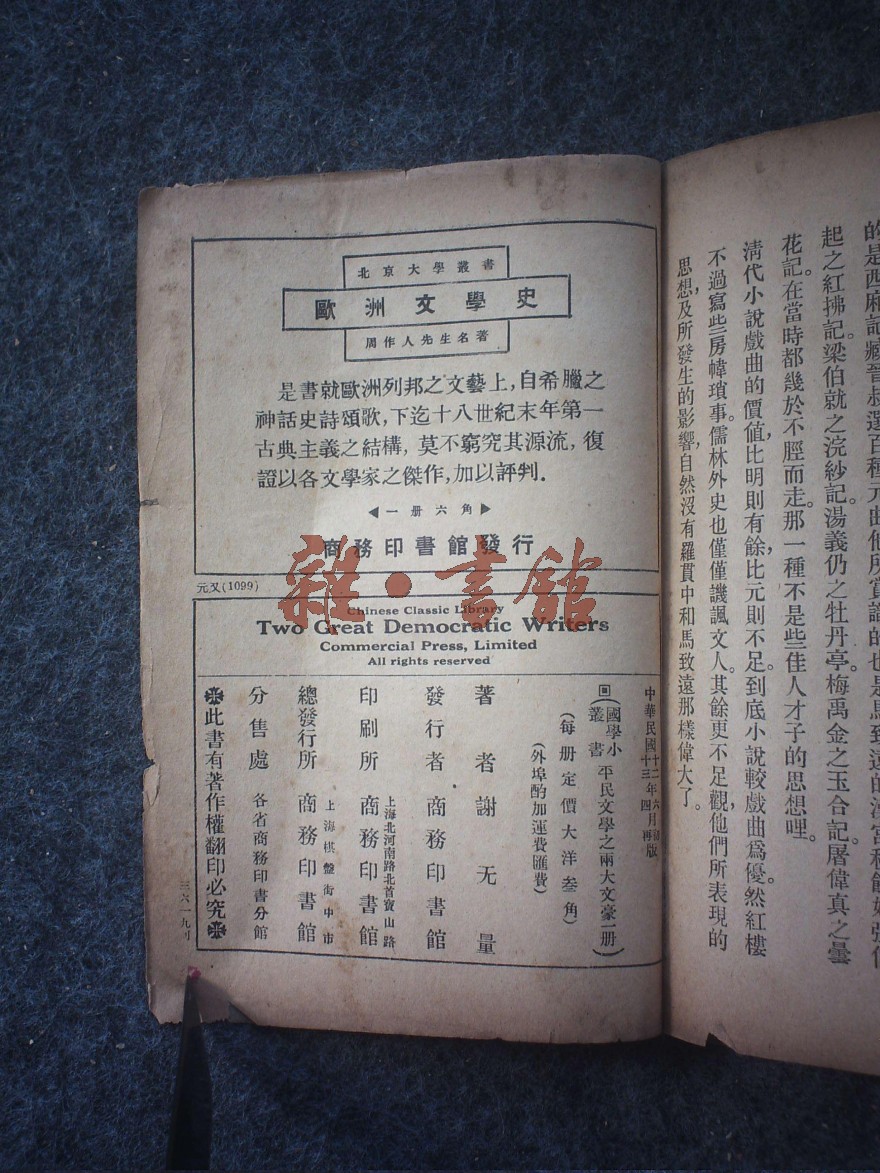 的是西麻記臧晉叔選百種元曲他所賞識的也是馬致遠的漢宮秋
起之紅拂記。梁伯就之浣紗記。湯義仍之牡丹亭。梅禹金之玉合記。屠偉真之曇
花記。在當時都幾於不脛而走。那一種不是些佳人才子的思想哩。
清代小說戲曲的價值比明則有餘比元則不足。到底小說較戲曲爲優然紅樓
不過寫些房幃瑣事。儒林外史也僅僅譏諷文人。其餘更不足觀，他們所表現的
思想，及所發生的影響，自然沒有羅貫中和馬致遠那樣偉大了。
北京大學叢書
歐洲文學史
周作人先生名著
是書就歐洲列邦之文藝上，自希臘之
神話史詩頌歌，下迄十八世紀末年第一
古典主義之結構，莫不窮究其源流，復
證以各文學家之傑作，加以評判．
◀一册六角▶
商務印書館發行
元又(1099)
雜·書館
Chinese Classic Library
Two Great Democratic Writers
Commercial Press, Limited
All rights reserved
中華民國十二年六月初版
十三年四月再版
(國學小叢書 平民文學之兩大文豪一册)
(每册定價大洋叁角)
(外埠酌加運費匯費)
著者 謝无量
發行者 商務印書館
上海北河南路北首寶山路
印刷所 商務印書館
上海棋盤街中市
總發行所 商務印書館
分售處 各省商務印書分館
此書有著作權翻印必究
三六一九